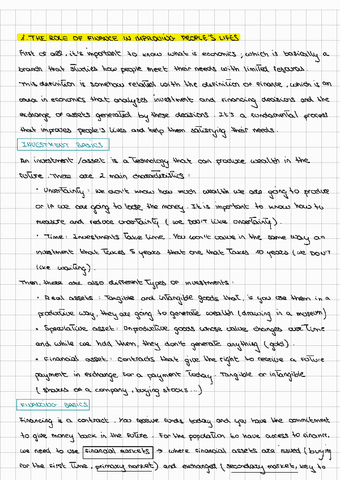 1. THE ROLE OF FINANCE IN IMPROVING PEOPLE'S LIVES
First of all, it's important to know what is economics, which is basically a
branch that studies how people meet their needs with limited resources.
This definition is somehow related with the definition of finance, which is an
area in economics that analyzes investment and financing decisions and the
exchange of assets generated by these decisions. It's a fundamental process
that improves people's lives and help them satisfying their needs.
INVESTMENT BASICS
An investment / asset is a technology that can produce wealth in the
future. There are 2 main characteristics:
· Uncertainty: we don't know how much wealth we are going to produce
or if we are going to lose the money. It is important to know how to
measure and reduce uncertainty (we DON'T like uncertainty).
· Time: Investments take time. You won't value in the same way an
investment that takes 5 years that one that takes 10 years (we DON'T
like waiting).
Then, there are also different types of investments:
· Real assets: Tangible and intangible goods that, if you use them in a
productive way, they are going to generate wealth (drawing in a museum)
· Speculative asset: Unproductive goods whose value changes over time
and while we hold them, they don't generate anything (gold).
· Financial asset: contracts that give the right to receive a future
payment in exchange for a payment today. Tangible or intangible
(shares of a company, buying stocks...)
FINANCING BASICS
Financing is a contract. You receive funds today and you have the commitment
to give money back in the future. For the population to have access to finance,
we need to use financial markets → where financial assets are issued (buying
for the first time, primary market) and exchanged (secondary market, key to